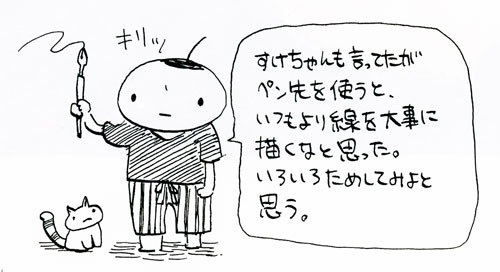 キリッ
すけちゃんも言ってたが
ペン先を使うと、
いつもより線を大事に
描くなと思った。
いろいろためしてみよと
思う。